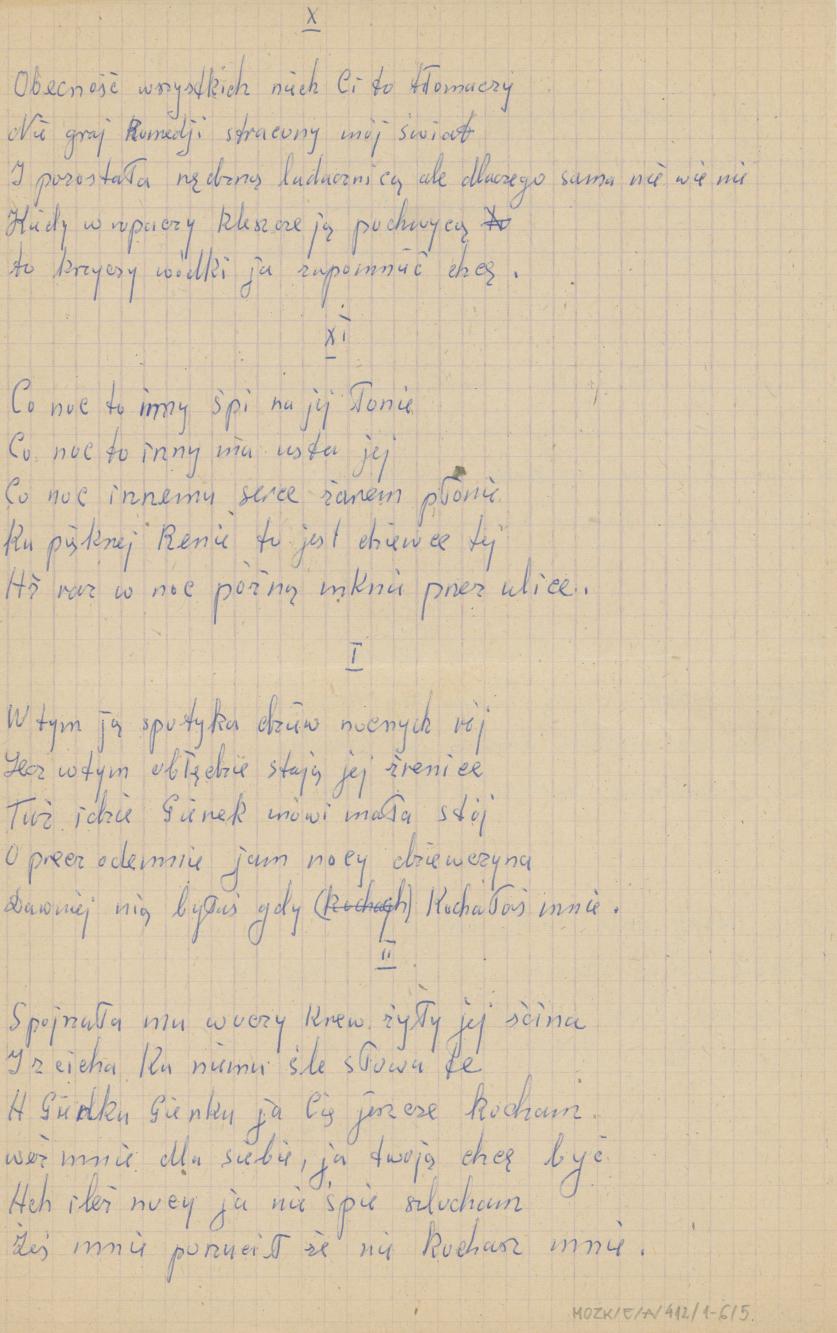 X
Obecność wszystkich niech Ci to tłomaczy
Nie graj Komedji stracony mój świat
I pozostała nędzną ladacznicą ale dlaczego sama nie wie nie
Kiedy w ropaczy kleszcze ją pochwycą to
to krzyczy wódki ja zapomnieć chcę .
XI
Co noc to inny śpi na jej łonie
Co noc to inny ma usta jej
Co noc innemu serce żarem płonie
Ku pięknej Renie to jest dziewce tej
Aż raz w noc późną mknie przez ulice..
I
W tym ją spotyka dziew nocnych rój
Lecz wtym obłędzie stają jej źrenice
Tuż idzie Gienek mówi mała stój
O precz odemnie jam nocy dziewczyna
Dawniej nią byłaś gdy (kochagh) Kochałaś mnie .
II
Spojrzała mu woczy krew żyły jej ścina
I z cicha Ku niemu śle słowa te
A Gienku Gienku ja Cię jeszcze kocham.
weź mnie dla siebie, ja twoją chcę być
Ach ileż nocy ja nie śpie szlocham
Żeś mnie porzucił że nie kochasz mnie .
MOZK/E/A/412/1-6/5.